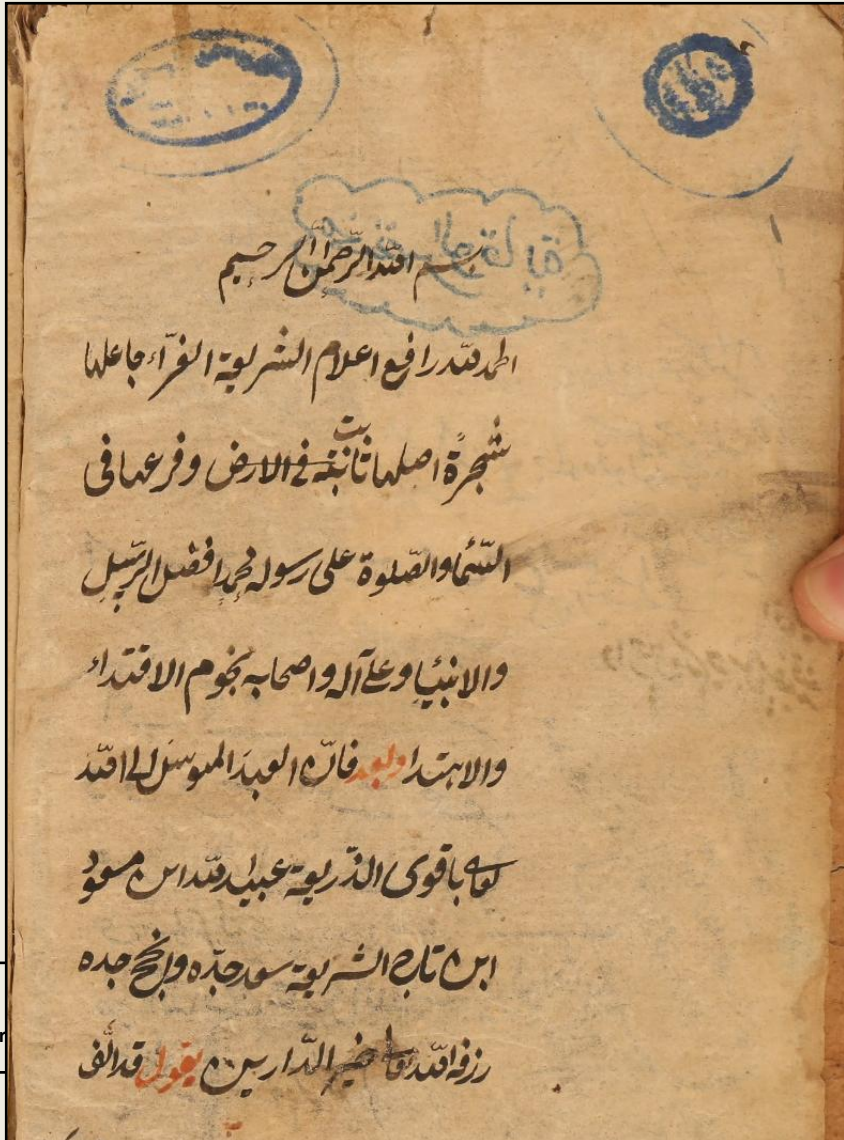 بسم الله الرحمن الرحيم
الحمد لله رافع اعلام الشريعة الغرّاء جاعلها
شجرةً اصلها ثابت في الارض وفرعها فى
السّما والصّلوة على رسوله محمدٍ افضل الرّسل
والانبيا وعلى آله واصحابه نجوم الاقتداء
والاهتدا وبعد فانّ العبد المتوسل الى الله
تعالى باقوى الذّريعة عبيد الله ابن مسعود
ابن تاج الشريعة سعد جدّه وانجح جده
رزقه الله تعا خير الدّارين يقول قد الّف